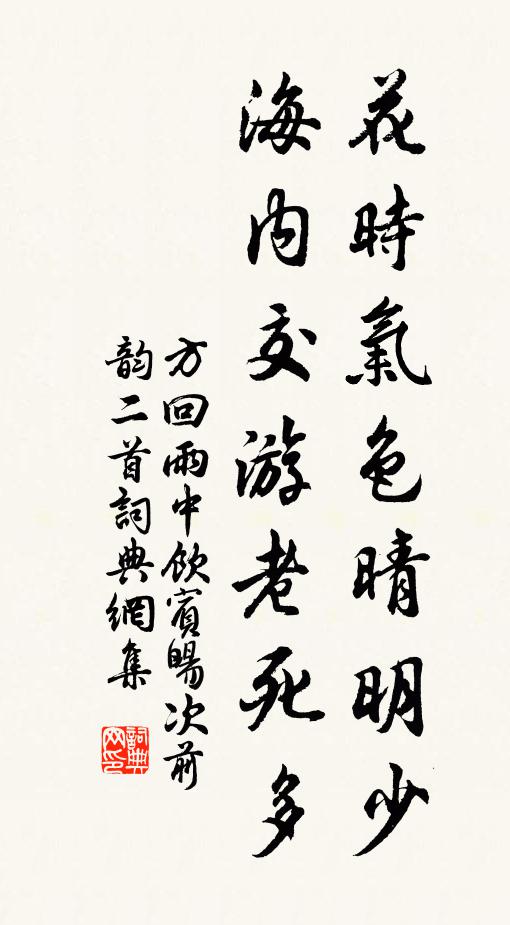 花時氣色晴明少
海内交游老死多
方回雨中飲賓暘次前
韵二首詞典網集
詞典
网印